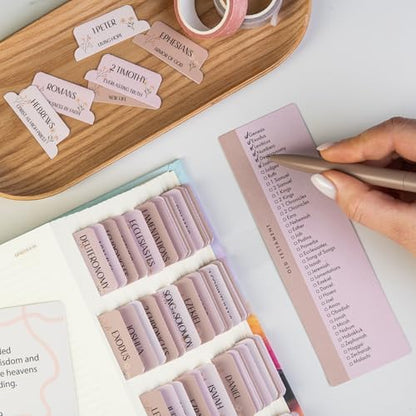 1 PETER
LIVING HOPE
EPHESIANS
ARMOR OF GOD
2 TIMOTHY
EVERLASTING TRUTH
ROMANS
NEW LIFE
HEBREWS
DEUTERONOMY
ECCLESIASTES
LAMENTATIONS
EXODUS
JOSHUA
SONG OF SOLOMON
EZEKIEL
ISAIAH
DANIEL
wisdom and
e heavens
nding.
OLD TESTAMENT
Genesis
Exodus
Leviticus
Numbers
Deuteronomy
Joshua
Judges
Ruth
1 Samuel
2 Samuel
1 Kings
2 Kings
1 Chronicles
2 Chronicles
Ezra
Nehemiah
Esther
Job
Psalms
Proverbs
Ecclesiastes
Song of Songs
Isaiah
Jeremiah
Lamentations
Ezekiel
Daniel
Hosea
Joel
Amos
Obadiah
Jonah
Micah
Nahum
Habakkuk
Zephaniah
Haggai
Zechariah
Malachi